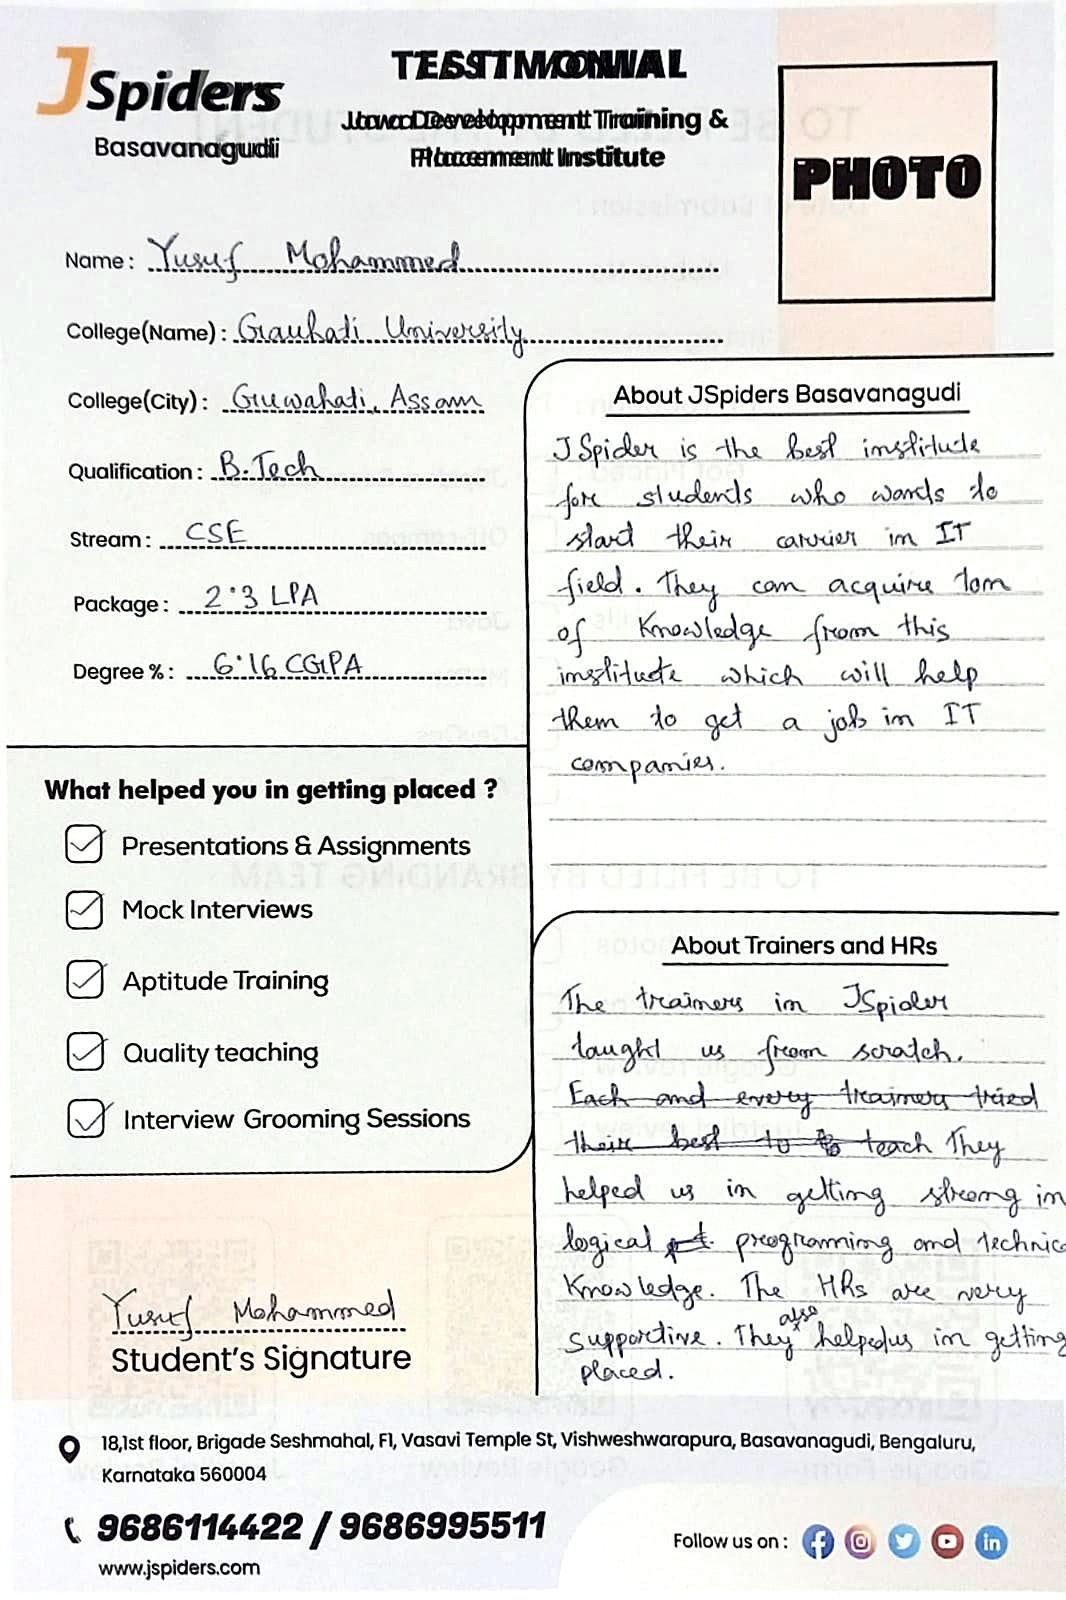 JSpiders
Basavanagudi
TESTIMONIAL
Java Development Training &
Placement Institute
PHOTO
Name : Yusuf Mohammed
College(Name) : Gauhati University
College(City) : Guwahati, Assam
Qualification : B.Tech
Stream : CSE
Package : 2.3 LPA
Degree % : 6.16 CGPA
What helped you in getting placed ?
Presentations & Assignments
Mock Interviews
Aptitude Training
Quality teaching
Interview Grooming Sessions
About JSpiders Basavanagudi
JSpider is the best institude
for students who wands to
start their carrier in IT
field. They can acquire ton
of Knowledge from this
institude which will help
them to get a job in IT
companies.
About Trainers and HRs
The trainers in JSpider
taught us from scratch.
Each and every trainers tried
their best to to teach They
helped us in getting strong in
logical programming and technic
Knowledge. The HRs are very
supportive. They also helped us in getting
placed.
Yusuf Mohammed
Student's Signature
18,1st floor, Brigade Seshmahal, F1, Vasavi Temple St, Vishweshwarapura, Basavanagudi, Bengaluru,
Karnataka 560004
9686114422 / 9686995511
www.jspiders.com
Follow us on :